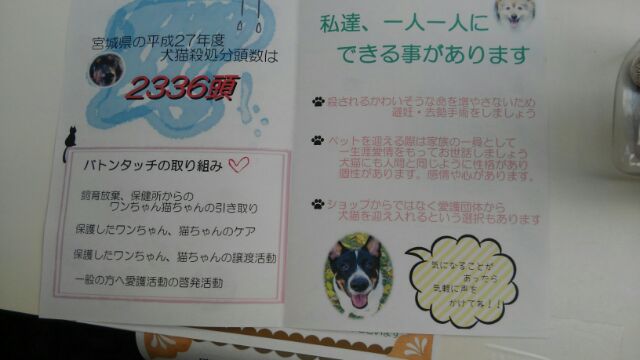 宮城県の平成27年度
犬猫殺処分頭数は
2336頭
バトンタッチの取り組み
飼育放棄、保健所からの
ワンちゃん猫ちゃんの引き取り
保護したワンちゃん、猫ちゃんのケア
保護したワンちゃん、猫ちゃんの譲渡活動
一般の方へ愛護活動の啓発活動
私達、一人一人に
できる事があります
殺されるかわいそうな命を増やさないため
避妊・去勢手術をしましょう
ペットを迎える際は家族の一員として
一生涯愛情をもってお世話しましょう
犬猫にも人間と同じように性格があり
個性があります。感情や心があります。
ショップからではなく愛護団体から
犬猫を迎え入れるという選択もあります
気になることが
あったら
気軽に声を
かけてね!!